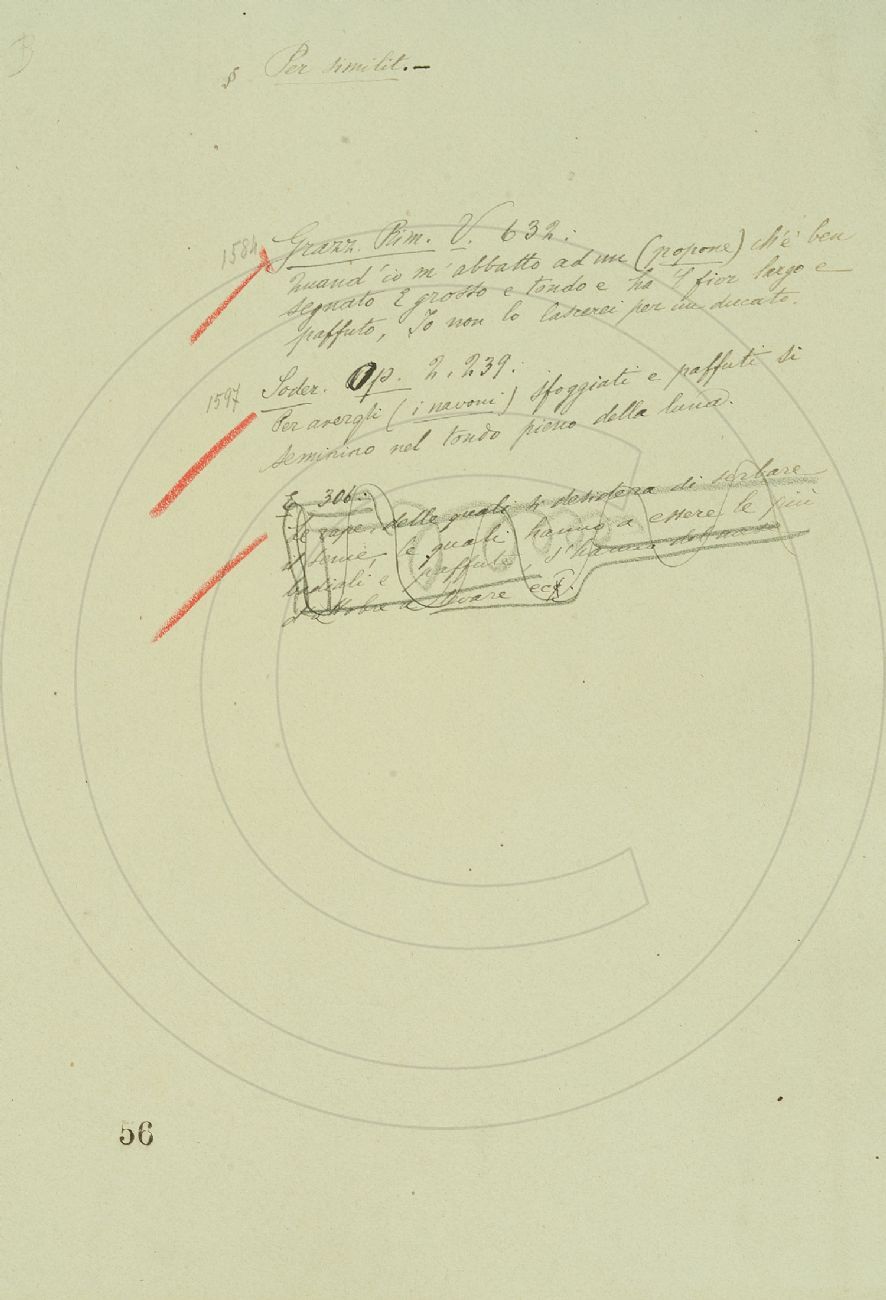 § Per similit.–
1584 Grazz. Rim. V. 632:
Quand'io m'abbatto ad un (popone) ch'è ben
segnato E grosso e tondo e ha 'l fior largo e
paffuto, Io non lo lascerei per un ducato.
1597 Soder. Op. 2. 239:
Per avergli (i navoni) sfoggiati e paffuti si
seminino nel tondo pieno della luna.
E 306:
le rape delle quali si desidera di serbare
il seme, le quali hanno a essere le più
badiali e paffute, s'hanno
d'ottobre a levare ecc.
56